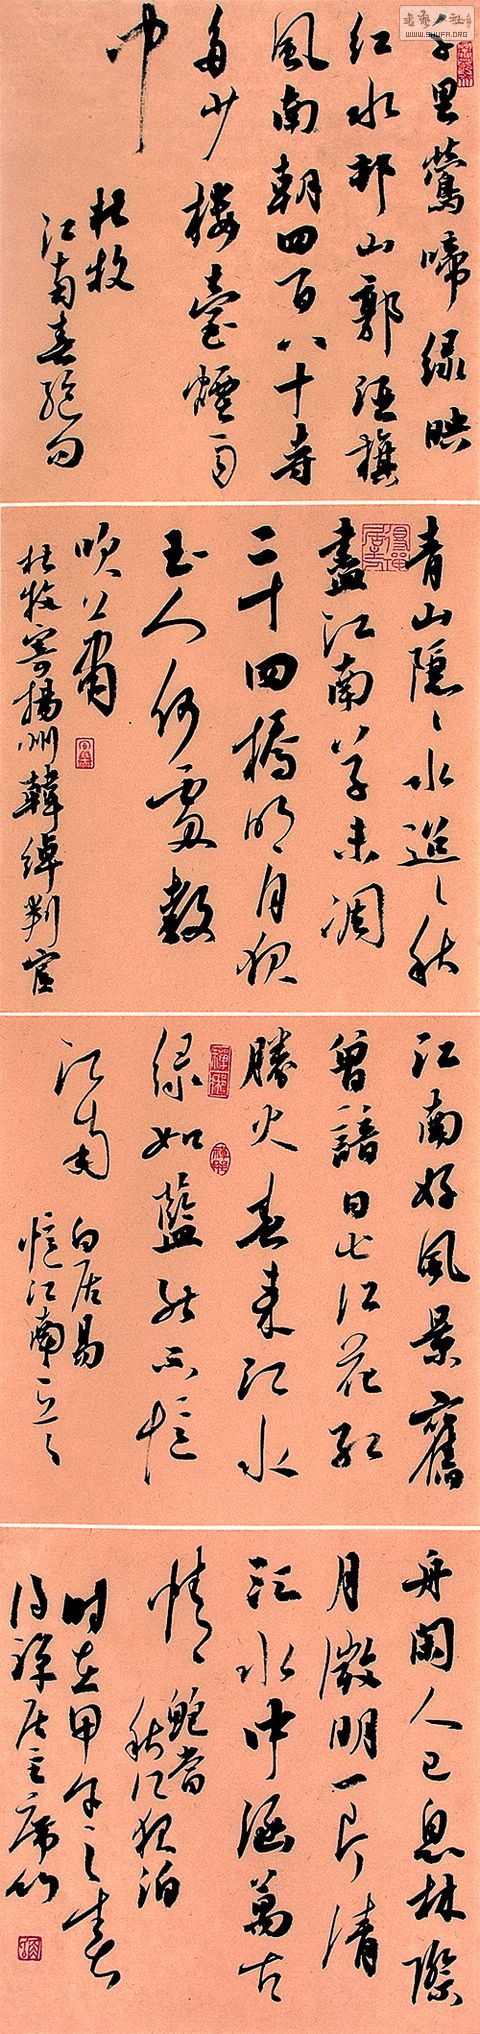 千里鶯啼绿映
红水邨山郭酒旗
風南朝四百八十寺
多少楼臺煙雨
中
杜牧
江南春绝句
WWW.SHUFA.ORG
青山隱〻水迢〻秋
盡江南草未凋
二十四橋明月夜
玉人何處教
吹簫
杜牧寄揚州韓绰判官
江南好風景舊
曾諳日出江花红
勝火春来江水
绿如藍能不憶
江南
白居易
憶江南
舟闲人已息林際
月微明一片清
江水中涵萬古
情
鲍當
秋江夜泊
時在甲午之春